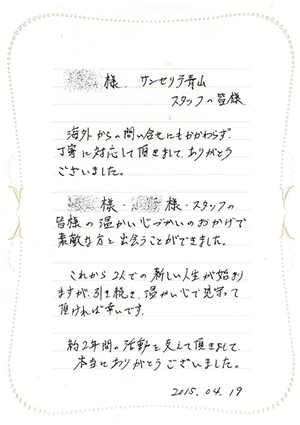 様. サンセリテ青山
スタッフの皆様.
海外からの問い合せにもかかわらず.
丁寧に対応して頂きまして、ありがとう
ございました。
様・様・スタッフの
皆様の温かい心づかいのおかげで
素敵な方と出会うことができました。
これから2人での新しい人生が始まり
ますが、引き続き、温かい心で見守って
頂ければ幸いです.
約2年間の活動を支えて頂きまして、
本当にありがとうございました。
2015.04.19